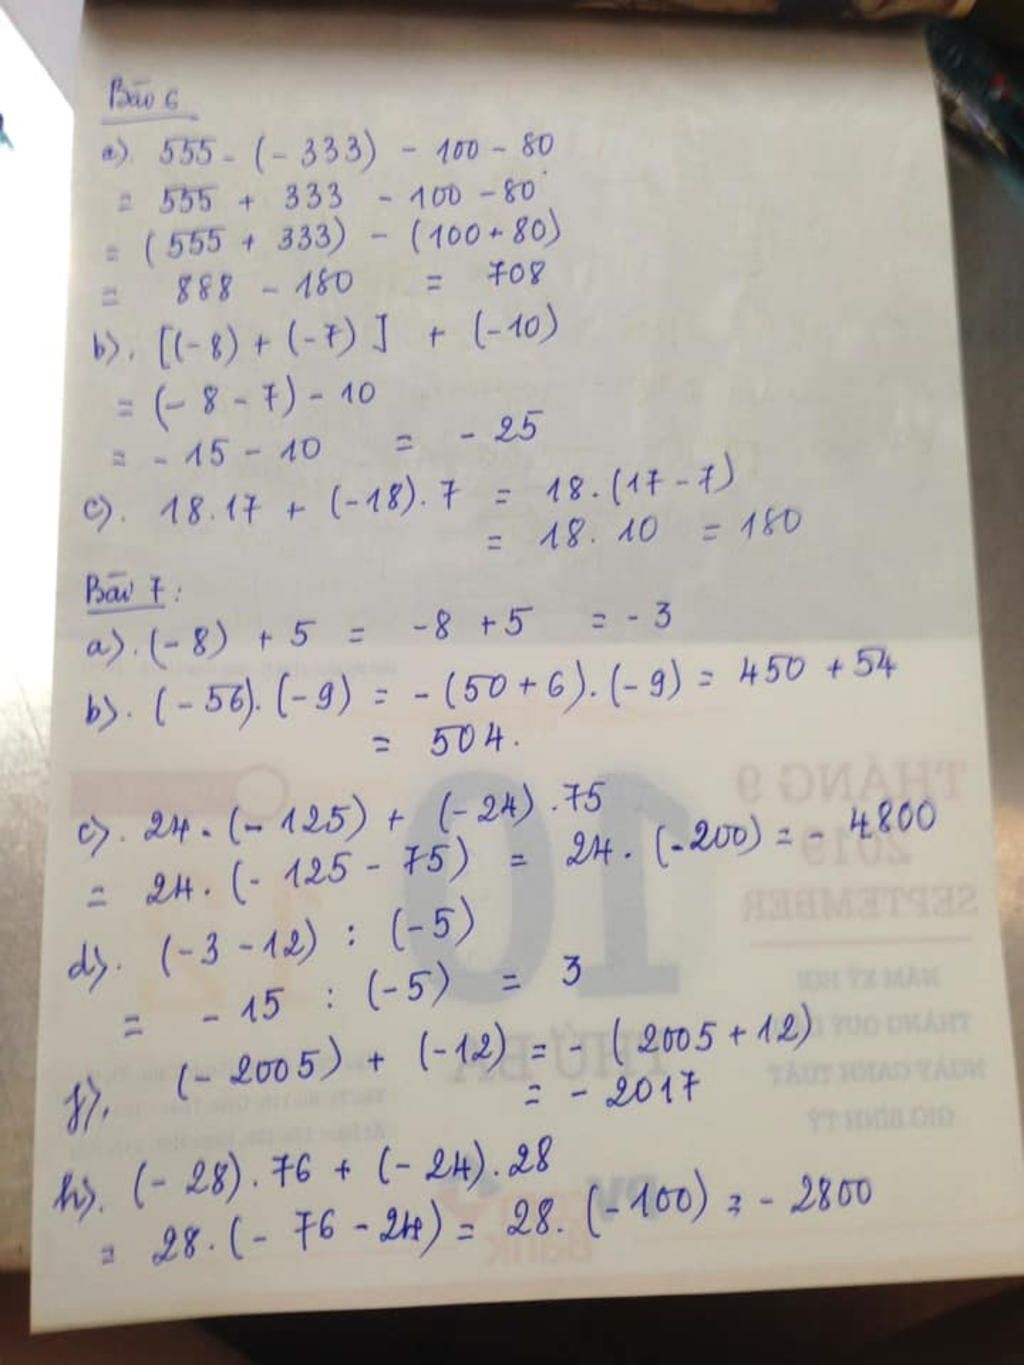 Bài 6
a). 555 - (-333) - 100 - 80
= 555 + 333 - 100 - 80
= (555 + 333) - (100 + 80)
= 888 - 180 = 708
b). [(-8) + (-7)] + (-10)
= (-8 - 7) - 10
= -15 - 10 = -25
c). 18.17 + (-18).7 = 18.(17-7)
= 18.10 = 180
Bài 7:
a). (-8) + 5 = -8 + 5 = -3
b). (-56).(-9) = -(50+6).(-9) = 450 + 54
= 504.
c). 24.(-125) + (-24).75
= 24.(-125 - 75) = 24.(-200) = -4800
d). (-3 - 12) : (-5)
= -15 : (-5) = 3
f). (-2005) + (-12) = -(2005 + 12)
= -2017
h). (-28).76 + (-24).28
= 28.(-76 - 24) = 28.(-100) = -2800
10
THÁNG 9
2019
SEPTEMBER
THỨ BA